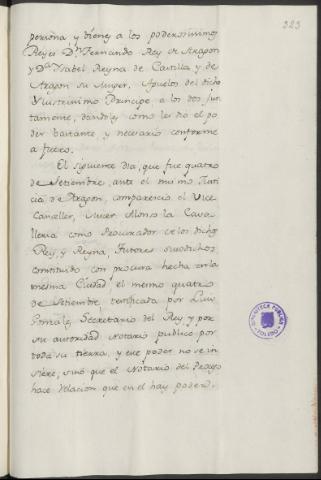 223
persona y bienes a los poderosissimos
Reyes Dn. Fernando Rey de Aragon
y Da. Ysabel Reyna de Castilla y de
Aragon su Muger, Aguelos del dicho
Yllustrissimo Principe a los dos jun-
tamente, dandoles como les dio el po
der bastante y necesario conforme
a fueros.
El siguiente dia, que fue quatro
de Setiembre, ante el mismo Justi
cia de Aragon, comparecio el Vice
Canciller, Micer Alonso la Cava-
lleria como Procurador de los dichos
Rey, y Reyna, Tutores susodichos,
constituido con procura hecha en la
mesma Ciudad el mesmo quatro
de Setiembre testificada por Luis
Gonzalez Secretario del Rey, y por
su autoridad Notario publico por
toda su tierra, y ese poder no se in
siere, sino que el Notario del Proceso
hace relacion que en el hay poder,
BIBLIOTECA PUBLICA
TOLEDO